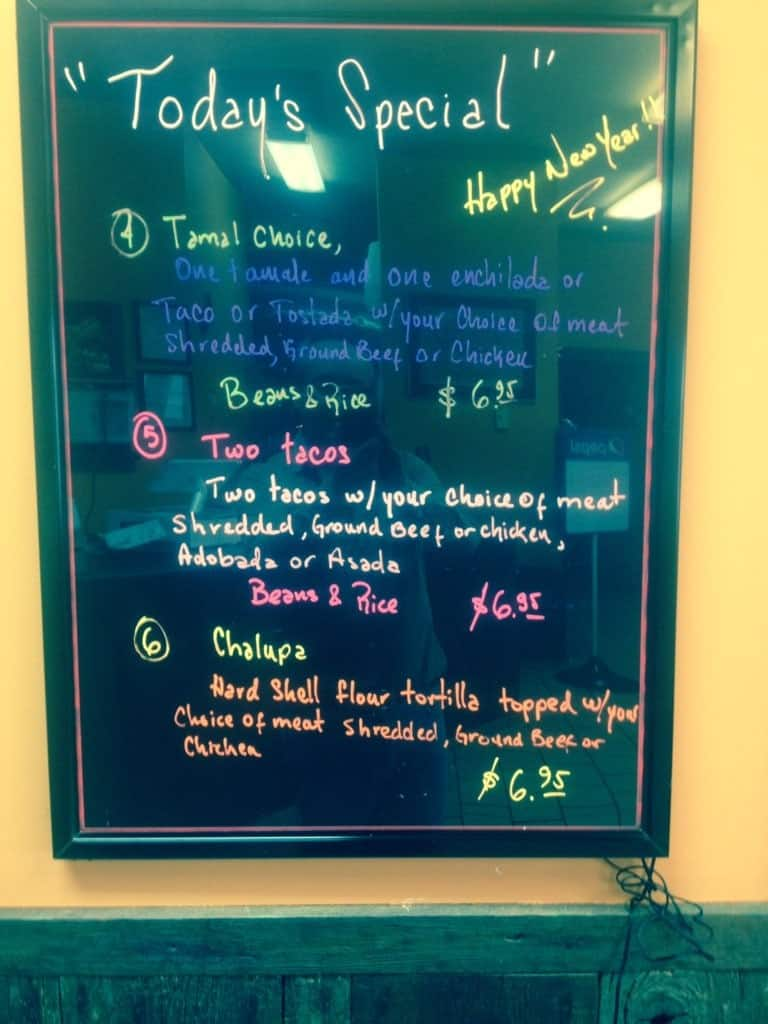 "Today's Special"
Happy New Year!!
4 Tamal Choice,
One tamale and one enchilada or
Taco or Tostada w/your Choice Of meat
Shredded, Ground Beef or Chicken
Beans & Rice $ 6.95
5 Two tacos
Two tacos w/your choice of meat
Shredded, Ground Beef or chicken,
Adobada or Asada
Beans & Rice $6.95
6 Chalupa
Hard Shell flour tortilla topped w/your
Choice of meat Shredded, Ground Beef or
Chicken
$ 6.95